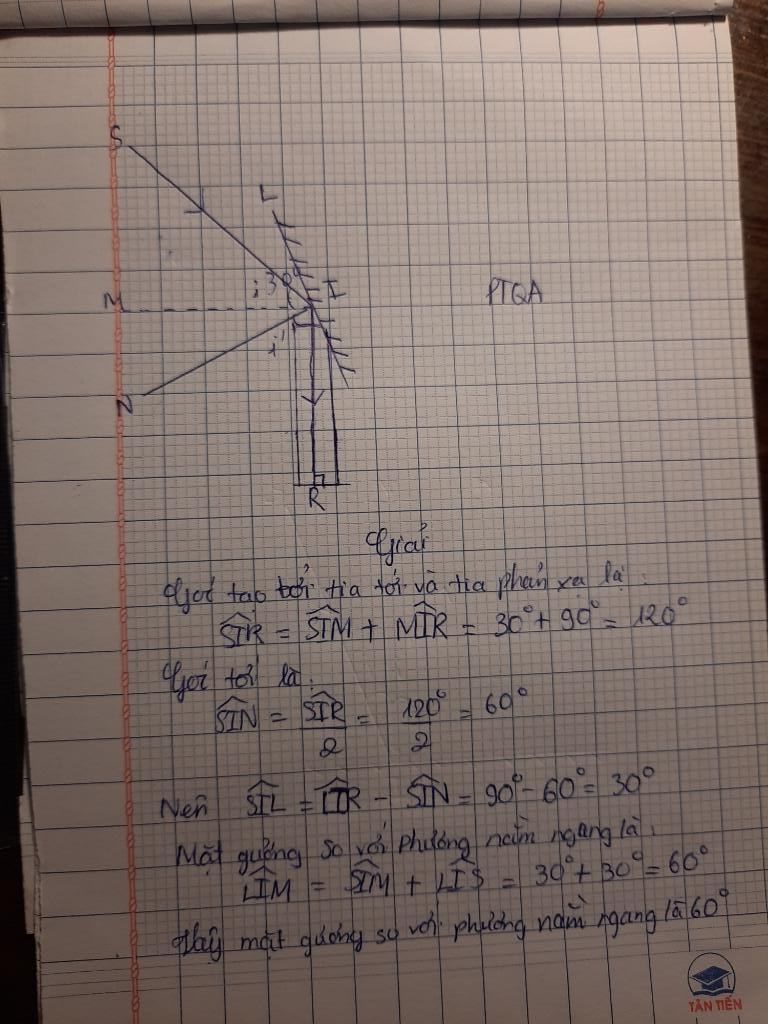 S
L
i 30°
I
M
PTGA
i'
N
R
Giải
Góc tạo bởi tia tới và tia phản xạ là:
SIR = SIM + MIR = 30° + 90° = 120°
Góc tới là:
SIN = SIR/2 = 120°/2 = 60°
Nên SIL = LIR - SIN = 90° - 60° = 30°
Mặt gương so với phương nằm ngang là.
LIM = SIM + LIS = 30° + 30° = 60°
Vậy mặt gương so với phương nằm ngang là 60°
TÂN TIẾN